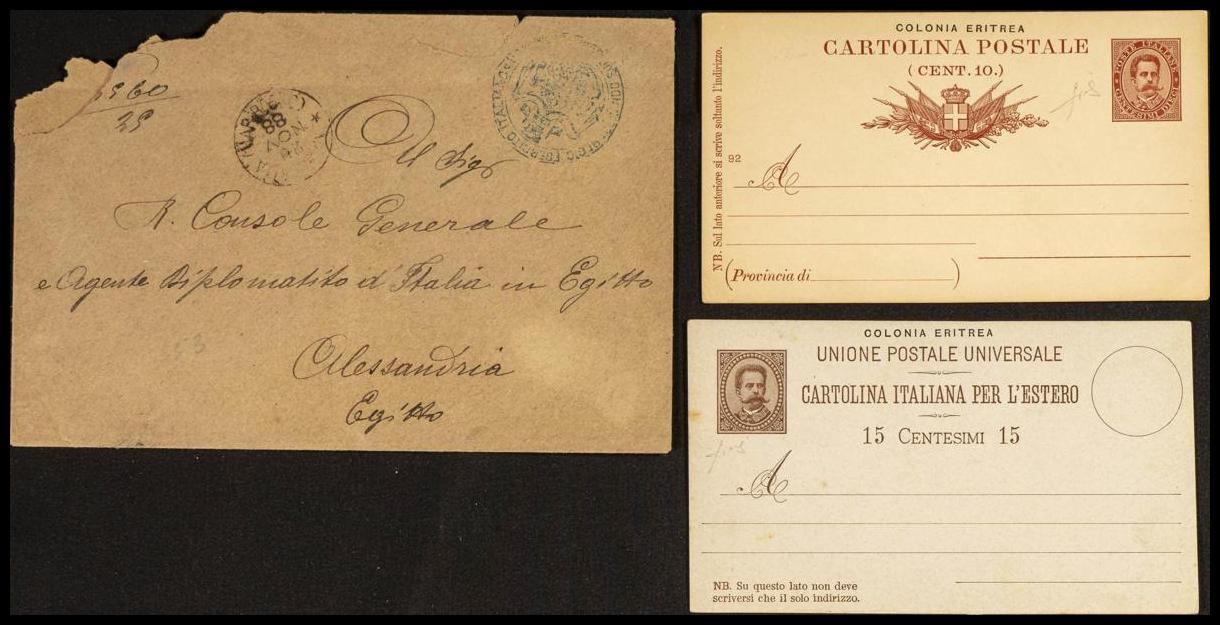 5960
25
88
NOV
Al Sigr
R. Console Generale
e Agente Diplomatito d'Italia in Egitto
Alessandria
Egitto
COLONIA ERITREA
CARTOLINA POSTALE
(CENT. 10.)
POSTE ITALIANE
CENTESIMI DIECI
NB. Sul lato anteriore si scrive soltanto l'indirizzo.
92
A
(Provincia di )
COLONIA ERITREA
UNIONE POSTALE UNIVERSALE
CARTOLINA ITALIANA PER L'ESTERO
15 CENTESIMI 15
A
NB. Su questo lato non deve
scriversi che il solo indirizzo.